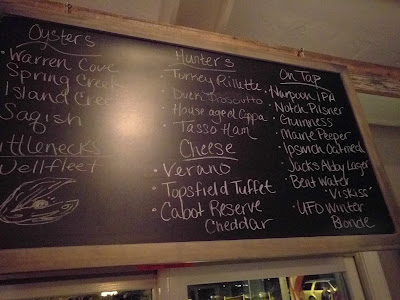 Oysters
• Warren Cove
Spring Creek
Island Creek
Saqish
ittlenecks
Wellfleet
Hunter's
• Turkey Rillette
• Duck Prosciutto
• House aged Coppa
• Tasso Ham
Cheese
• Verano
• Topsfield Tuffet
• Cabot Reserve
Cheddar
On Tap
• Harpoon IPA
• Notch Pilsner
• Guinness
• Maine Peeper
• Ipswich Oatmeal
• Jacks Abby Lager
• Bent Water
"Viskiss"
• UFO Winter
Blonde